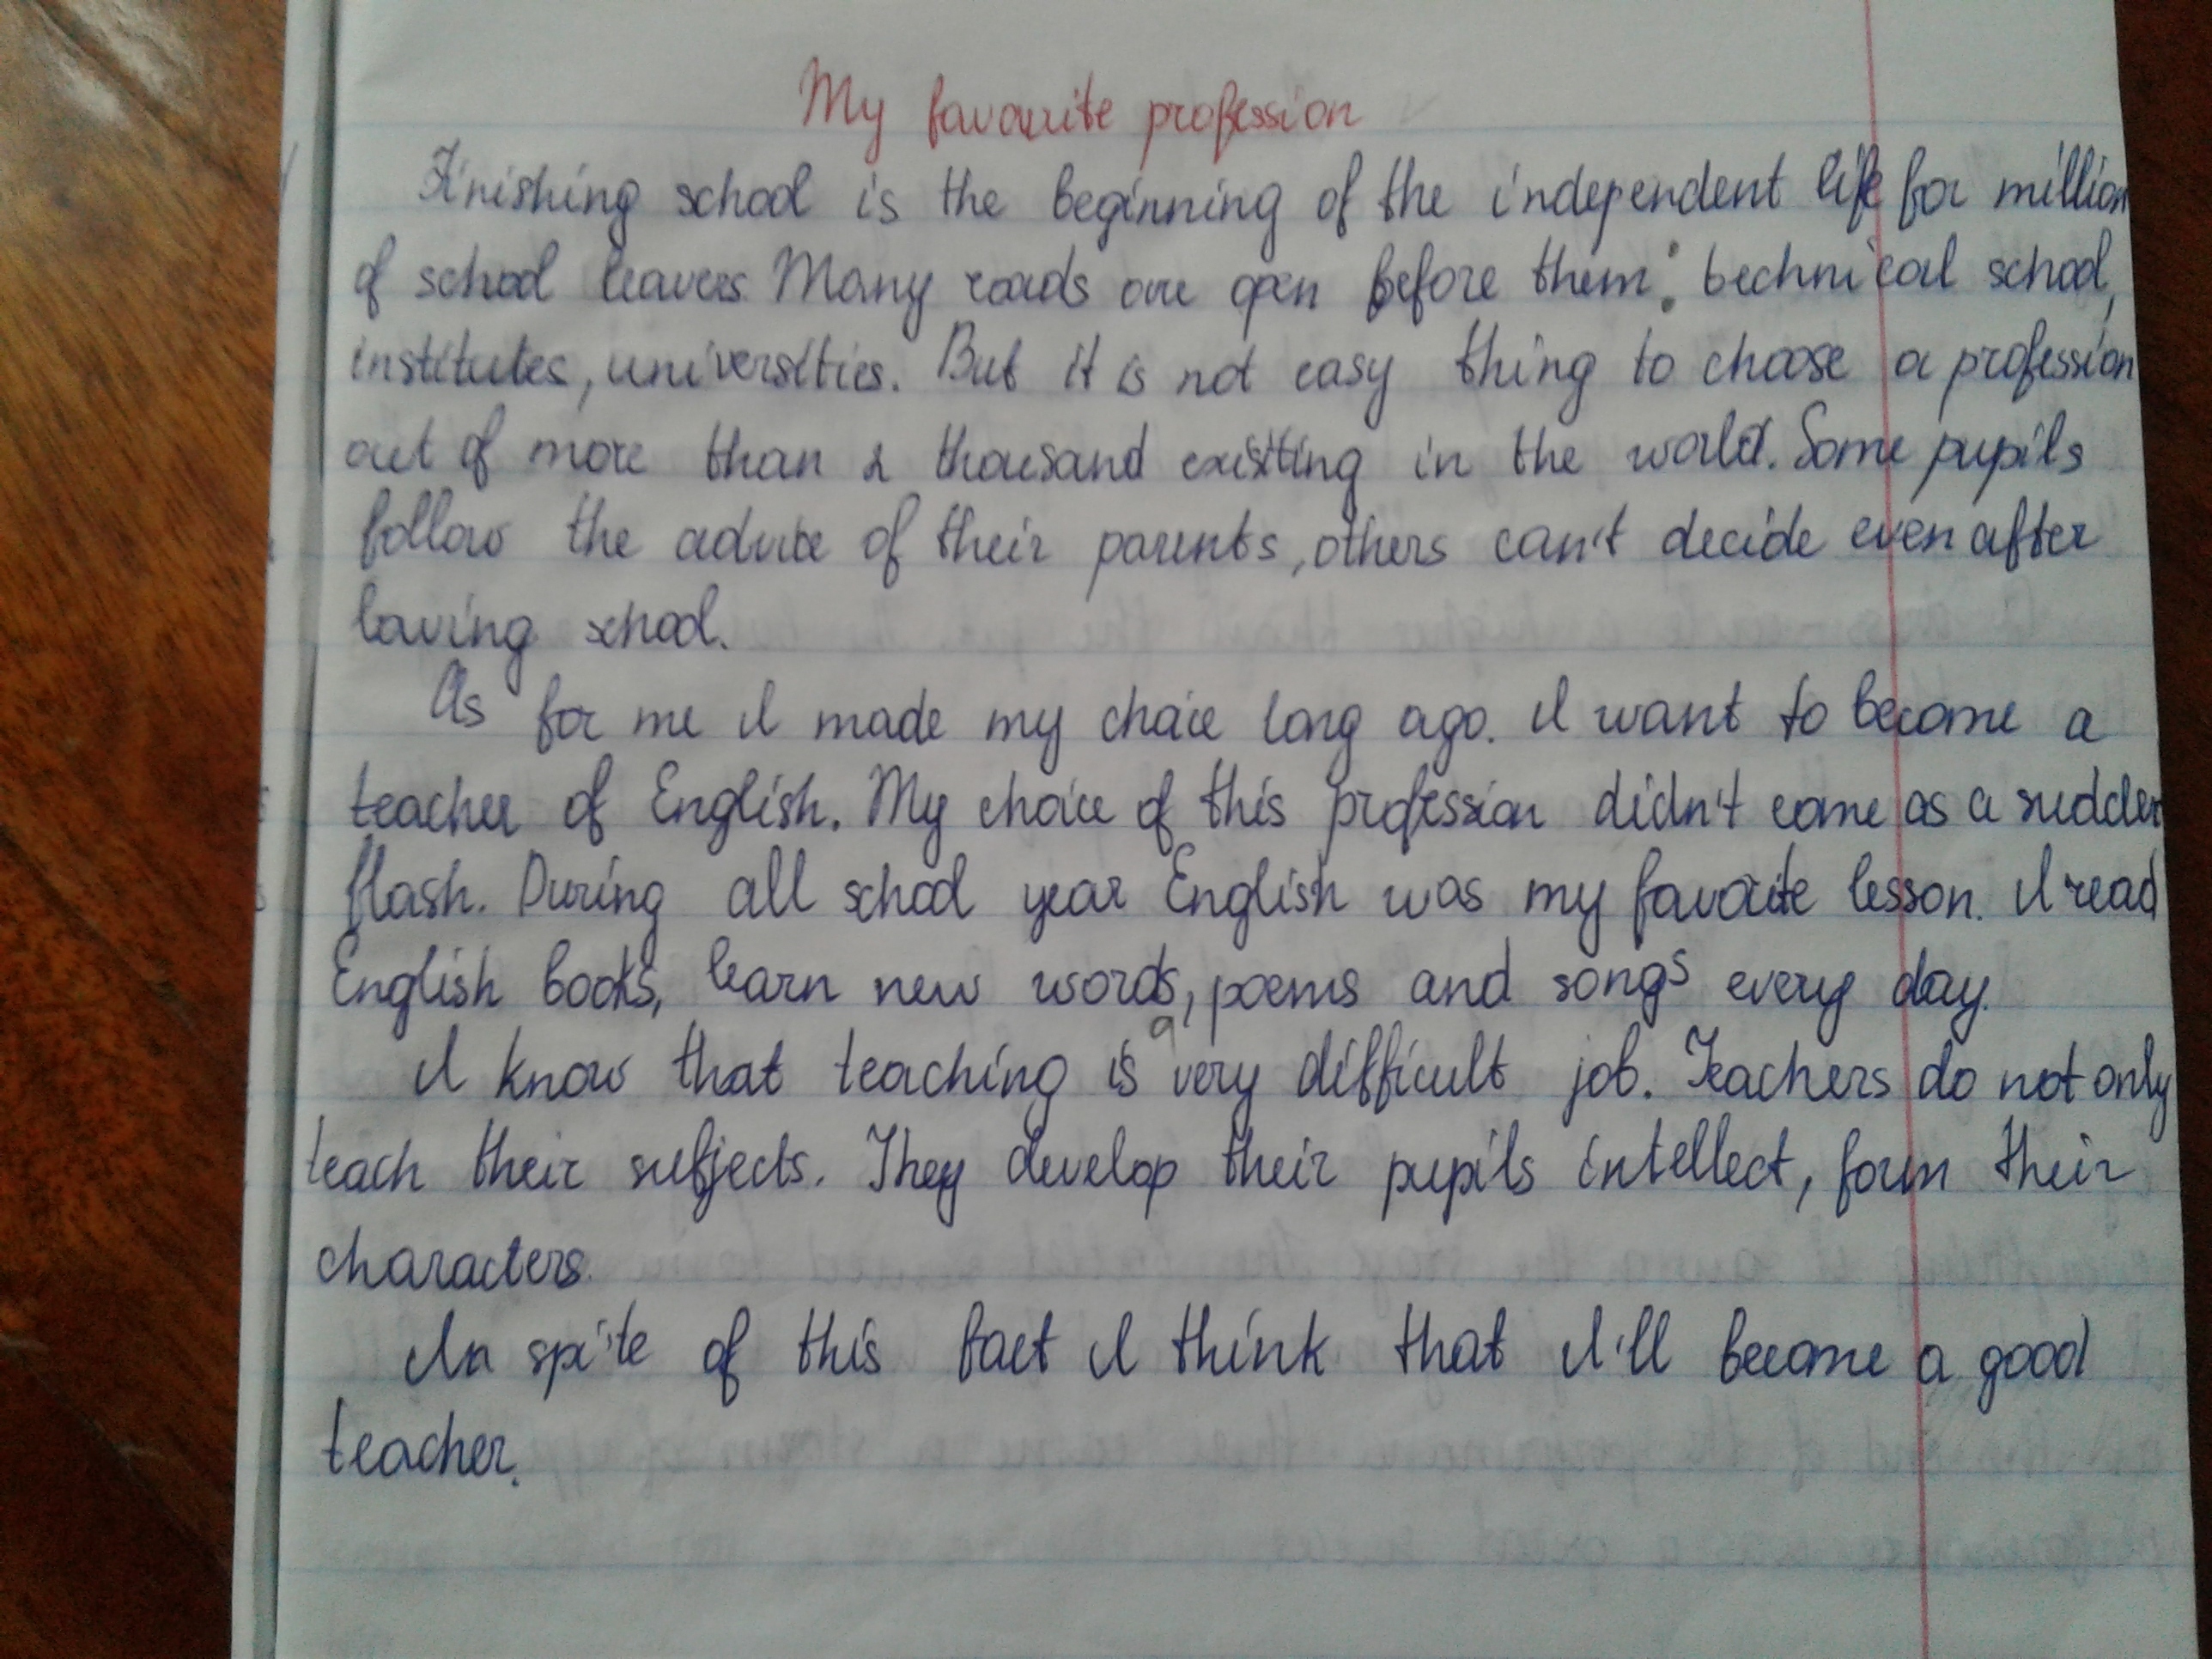 My favourite profession
Finishing school is the beginning of the independent life for million
of school leavers. Many roads are open before them: technical school,
institutes, universities. But it is not easy thing to choose a profession
out of more than 2 thousand existing in the world. Some pupils
follow the advice of their parents, others can't decide even after
leaving school.
As for me I made my choice long ago. I want to become a
teacher of English. My choice of this profession didn't come as a sudden
flash. During all school year English was my favorite lesson. I read
English books, learn new words, poems and songs every day.
I know that teaching is a very difficult job. Teachers do not only
teach their subjects. They develop their pupils intellect, form their
characters.
In spite of this fact I think that I'll become a good
teacher.